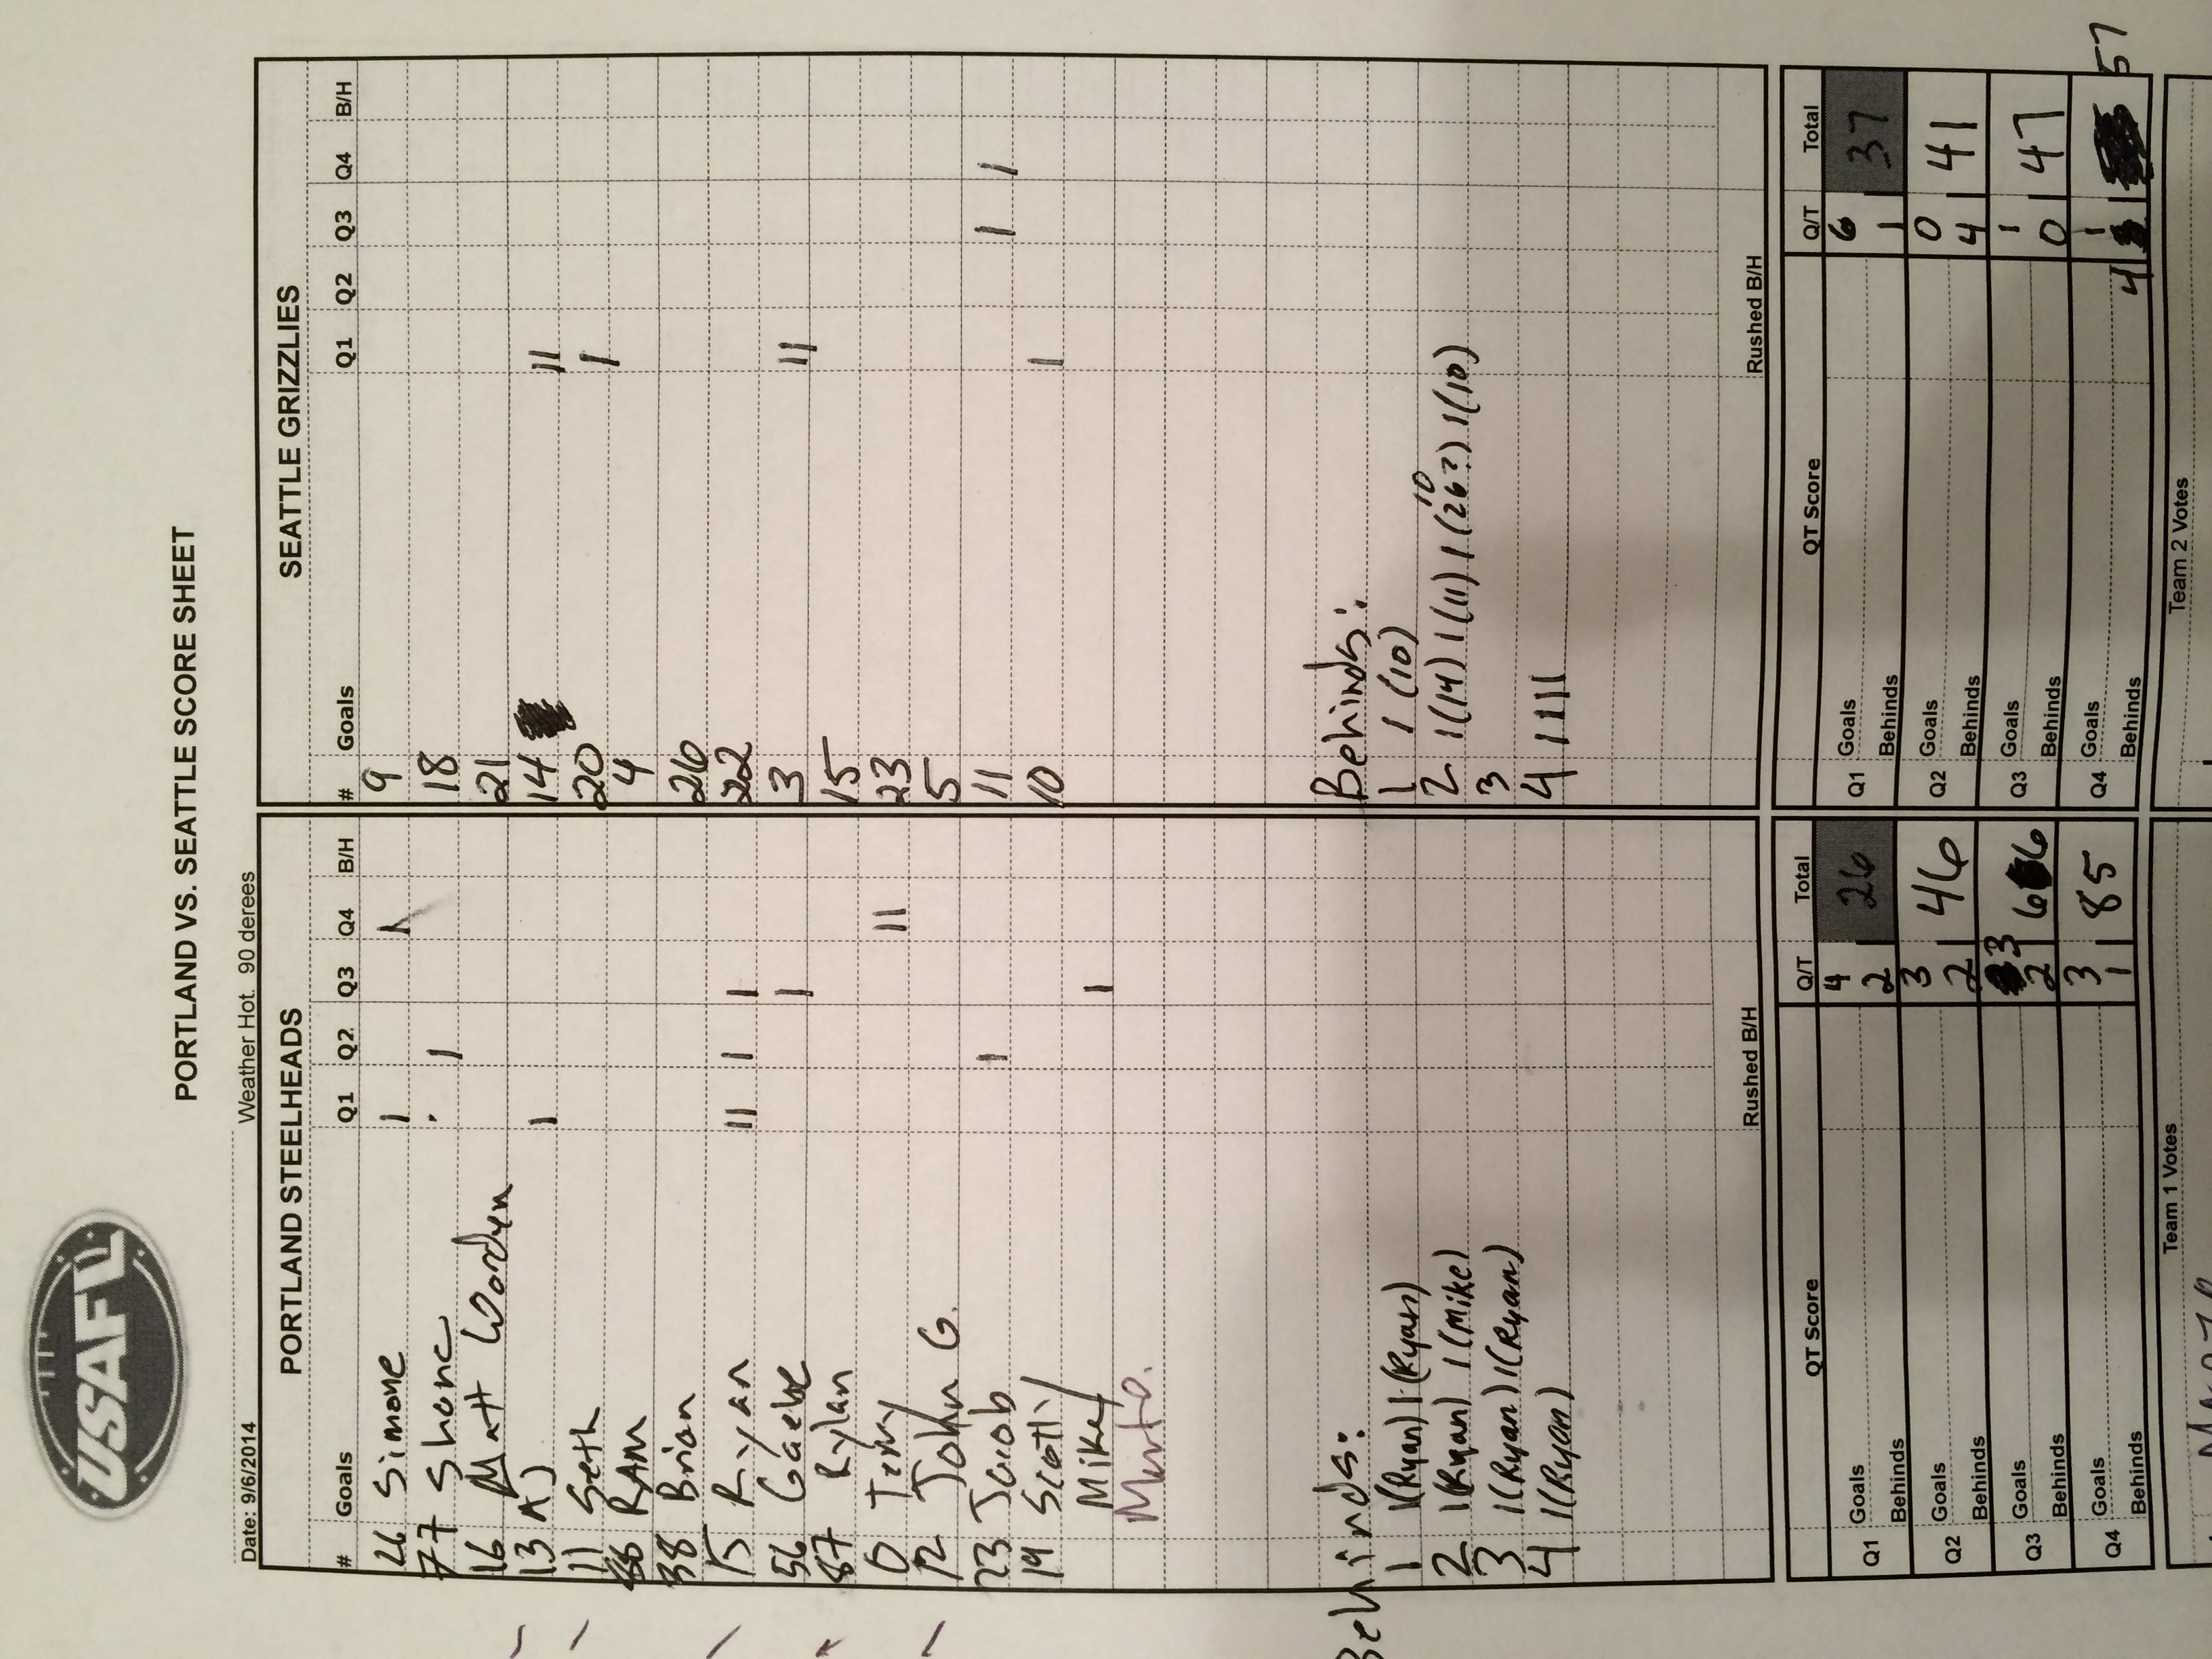 USAFL
PORTLAND VS. SEATTLE SCORE SHEET
Date: 9/6/2014 Weather Hot. 90 derees
PORTLAND STEELHEADS
# Goals Q1 Q2 Q3 Q4 B/H
26 Simone 1 1
77 Shane 1
16 Matt Worden
13 AJ 1
11 Seth
Ram
38 Brian
15 Ryan 11 1 1
56 Gaebe 1
87 Rylan
0 Terry 11
12 John G.
23 Jacob 1
19 Scotty
Mikey 1
Behinds:
1 1(Ryan) 1(Ryan)
2 1(Ryan) 1(Mike)
3 1(Ryan) 1(Ryan)
4 1(Ryan)
Rushed B/H
SEATTLE GRIZZLIES
# Goals Q1 Q2 Q3 Q4 B/H
9
18
21
14 11
20 1
4
26
22
3 11
15
23
5
11 1 1
10 1
Behinds:
1 1 (10)
2 1(14) 1(11) 1(26?) 10 1(10)
3
4 1111
Rushed B/H
QT Score Q/T Total
Q1 Goals 4
Behinds 2 26
Q2 Goals 3
Behinds 2 46
Q3 Goals 3
Behinds 2 66
Q4 Goals 3
Behinds 1 85
QT Score Q/T Total
Q1 Goals 6
Behinds 1 37
Q2 Goals 0
Behinds 4 41
Q3 Goals 1
Behinds 0 47
Q4 Goals 1
Behinds 4 57
Team 1 Votes
Team 2 Votes